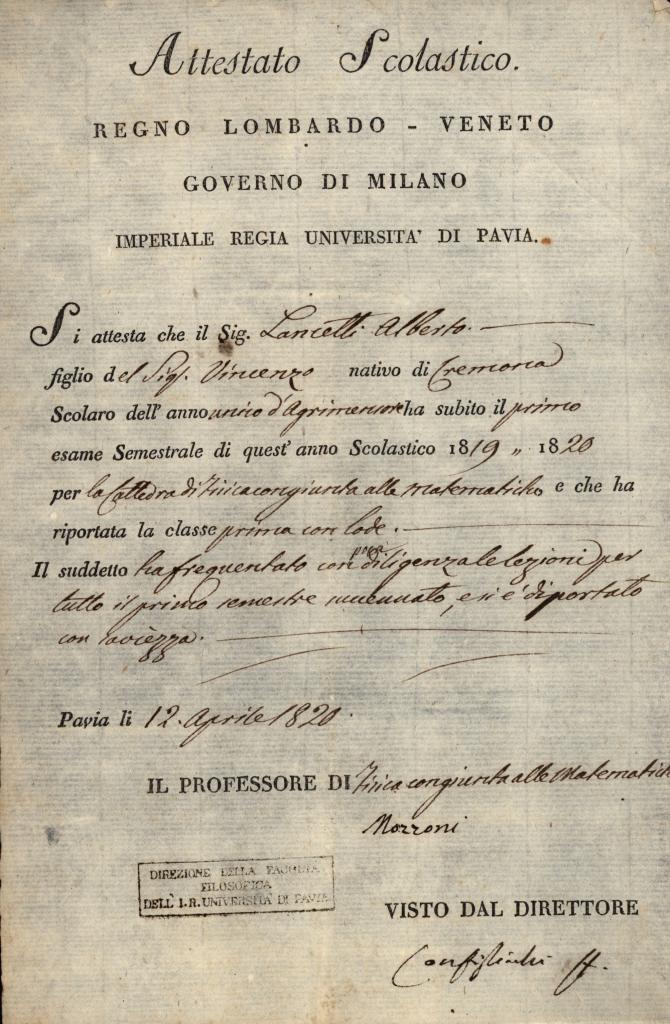 Attestato Scolastico.
REGNO LOMBARDO - VENETO
GOVERNO DI MILANO
IMPERIALE REGIA UNIVERSITA' DI PAVIA.
Si attesta che il Sig. Lancetti Alberto.
figlio del Sigr. Vincenzo nativo di Cremona
Scolaro dell' anno unico d'Agrimensore ha subito il primo
esame Semestrale di quest' anno Scolastico 1819 „ 1820
per la Cattedra di Fisica congiunta alle matematiche e che ha
riportata la classe prima con lode.
Il suddetto ha frequentato con diligenza le lezioni per
tutto il primo semestre, e si è diportato
con saviezza.
Pavia li 12. Aprile 1820.
IL PROFESSORE DI Fisica congiunta alle Matematich
Mozzoni
DIREZIONE DELLA FACOLTA
FILOSOFICA
DELL' I. R. UNIVERSITA DI PAVIA
VISTO DAL DIRETTORE
Configliachi